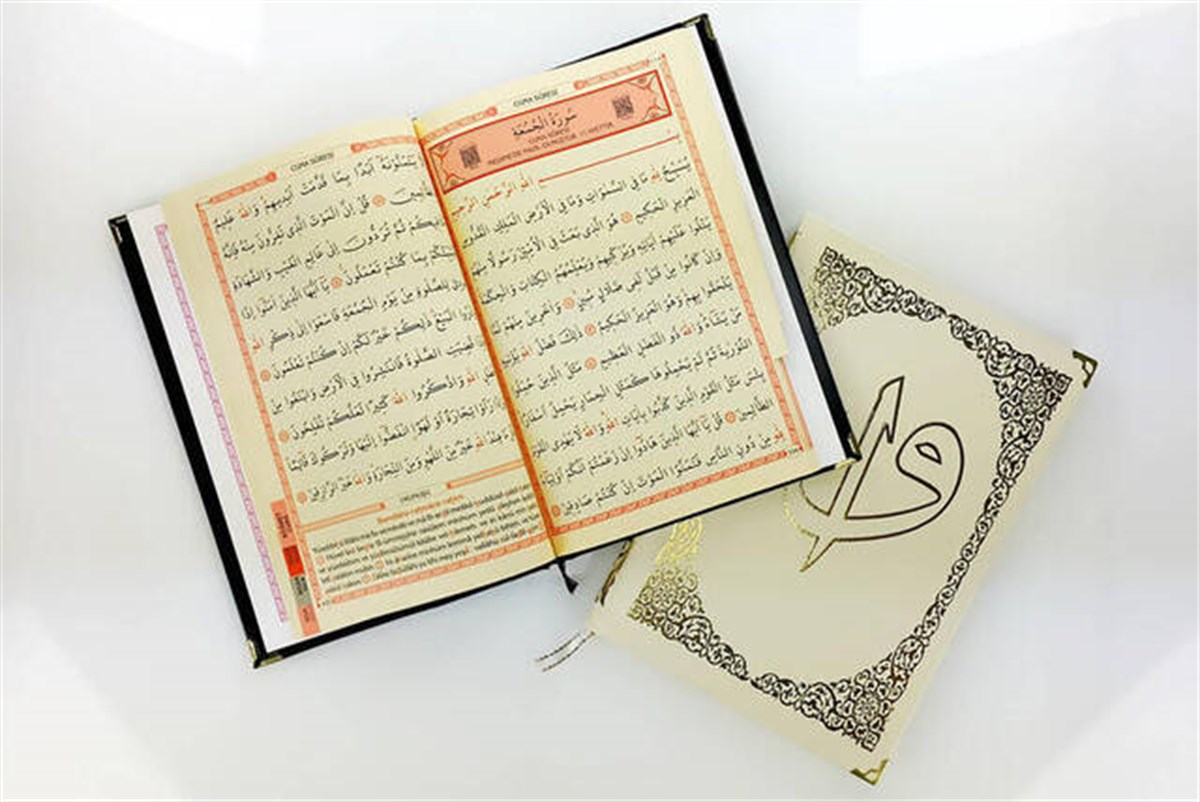 CUMA SÛRESİ
سُورَةُ الْجُمُعَةِ
CUMA SÛRESİ
اللّٰهِ الرَّحْمٰنِ الرَّحِيمِ
يُسَبِّحُ لِلّٰهِ مَا فِي السَّمٰوَاتِ وَمَا فِي الْاَرْضِ الْمَلِكِ الْقُدُّوسِ
الْعَزِيزِ الْحَكِيمِ هُوَ الَّذِي بَعَثَ فِي الْاُمِّيِّنَ رَسُولًا مِنْهُمْ
يَتْلُوا عَلَيْهِمْ اٰيَاتِهِ وَيُزَكِّيهِمْ وَيُعَلِّمُهُمُ الْكِتَابَ وَالْحِكْمَةَ
وَاِنْ كَانُوا مِنْ قَبْلُ لَفِي ضَلَالٍ مُبِينٍ وَاٰخَرِينَ مِنْهُمْ لَمَّا
يَلْحَقُوا بِهِمْ وَهُوَ الْعَزِيزُ الْحَكِيمُ ذٰلِكَ فَضْلُ اللّٰهِ
مَنْ يَشَاءُ وَاللّٰهُ ذُو الْفَضْلِ الْعَظِيمِ مَثَلُ الَّذِينَ حُمِّلُوا
التَّوْرٰيةَ ثُمَّ لَمْ يَحْمِلُوهَا كَمَثَلِ الْحِمَارِ يَحْمِلُ اَسْفَارًا
بِئْسَ مَثَلُ الْقَوْمِ الَّذِينَ كَذَّبُوا بِاٰيَاتِ اللّٰهِ وَاللّٰهُ لَا يَهْدِي الْقَوْمَ
الظَّالِمِينَ قُلْ يَا اَيُّهَا الَّذِينَ هَادُوا اِنْ زَعَمْتُمْ اَنَّكُمْ اَوْلِيَاءُ
لِلّٰهِ مِنْ دُونِ النَّاسِ فَتَمَنَّوُا الْمَوْتَ اِنْ كُنْتُمْ صَادِقِينَ
CUMA SÛRESİ
يَتَمَنَّوْنَهُ اَبَدًا بِمَا قَدَّمَتْ اَيْدِيهِمْ وَاللّٰهُ عَلِيمٌ
قُلْ اِنَّ الْمَوْتَ الَّذِي تَفِرُّونَ مِنْهُ فَاِنَّهُ
ثُمَّ تُرَدُّونَ اِلٰى عَالِمِ الْغَيْبِ وَالشَّهَادَةِ
بِمَا كُنْتُمْ تَعْمَلُونَ يَا اَيُّهَا الَّذِينَ اٰمَنُوا اِذَا
لِلصَّلٰوةِ مِنْ يَوْمِ الْجُمُعَةِ فَاسْعَوْا اِلٰى ذِكْرِ اللّٰهِ
الْبَيْعَ ذٰلِكُمْ خَيْرٌ لَكُمْ اِنْ كُنْتُمْ تَعْلَمُونَ
قُضِيَتِ الصَّلٰوةُ فَانْتَشِرُوا فِي الْاَرْضِ وَابْتَغُوا مِنْ
اللّٰهِ وَاذْكُرُوا اللّٰهَ كَثِيرًا لَعَلَّكُمْ تُفْلِحُونَ
رَاَوْا تِجَارَةً اَوْ لَهْوًا انْفَضُّوا اِلَيْهَا وَتَرَكُوكَ قَائِمًا
عِنْدَ اللّٰهِ خَيْرٌ مِنَ اللَّهْوِ وَمِنَ التِّجَارَةِ وَاللّٰهُ خَيْرُ الرَّازِقِينَ